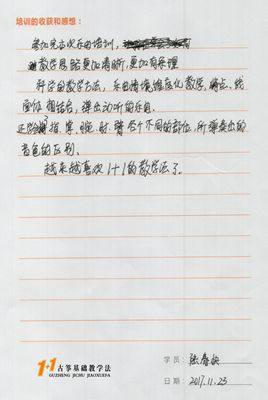 培训的收获和感想:
参加完古筝乐曲培训,
教学思路更加清晰,更加有条理
科学的教学方法,乐曲情境维度化教学,将点、线
面体相结合,弹出动听的乐曲。
还学习了指、掌、腕、肘、臂各个不同的部位,所弹奏出的
音色的区别。
越来越喜欢1+1的教学法了。
1+1古筝基础教学法
GUZHENG JICHU JIAOXUEFA
学员:张春
日期:2017.11.23